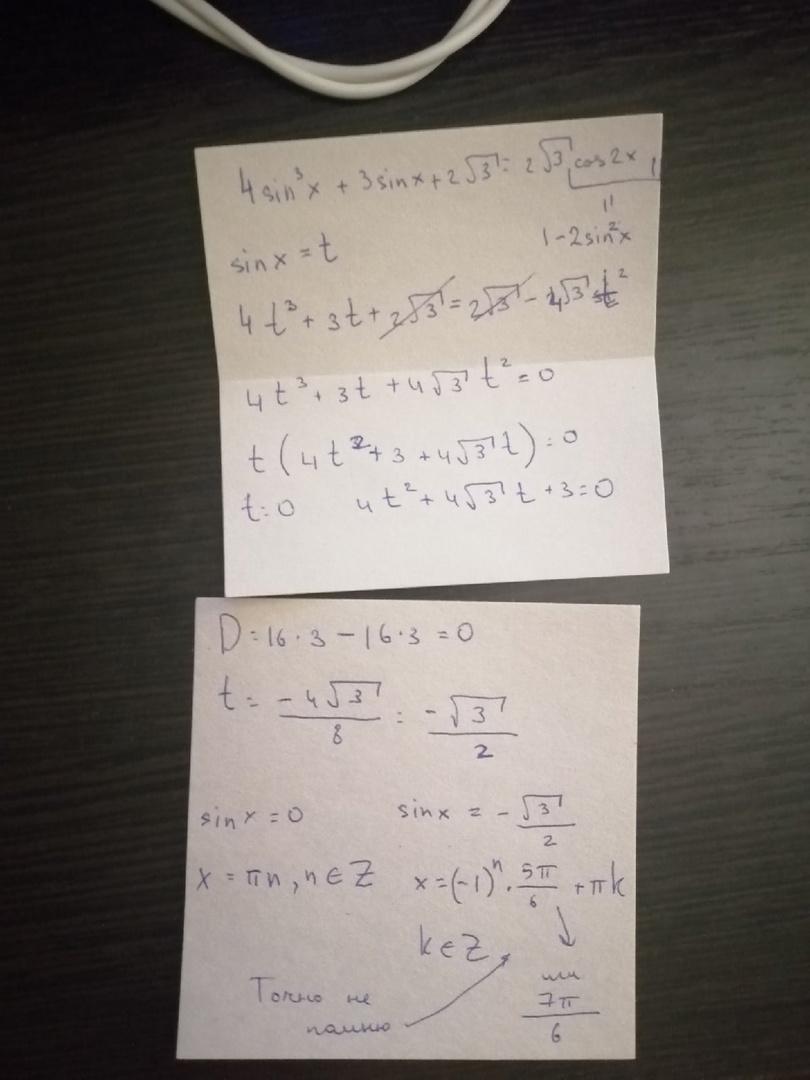 4sin³x + 3sinx + 2√3 = 2√3 cos2x
1-2sin²x
sinx = t
4t³ + 3t + 2√3 = 2√3 - 4√3 t²
4t³ + 3t + 4√3 t² = 0
t(4t² + 3 + 4√3 t) = 0
t = 0 4t² + 4√3 t + 3 = 0
D = 16·3 - 16·3 = 0
t = -4√3/8 = -√3/2
sinx = 0 sinx = -√3/2
x = πn, n ∈ Z x = (-1)ⁿ · 5π/6 + πk
k ∈ Z
или
7π/6
Точно не
помню